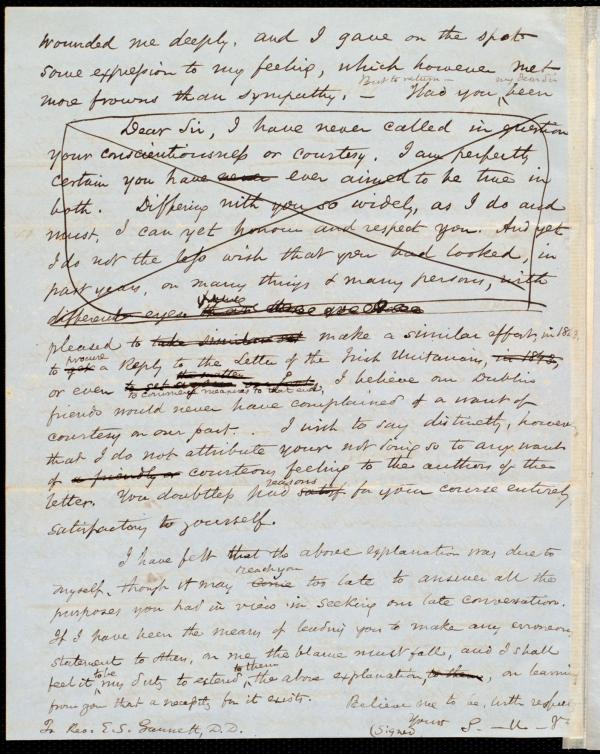 wounded me deeply. and I gave on the spot
some expression to my feeling, which however met
more frowns than sympathy. — But to return — Had you, my dear Sir been
Dear Sir, I have never called in question
your conscientiousness or courtesy. I am perfectly
certain you have never ever aimed to be true in
both. Differing with you so widely, as I do and
must, I can yet honour and respect you. And yet
I do not the less wish that you had looked, in
past years, on many things & many persons, with
different eyes
pleased to take similar make a similar effort, in 1843,
to get procure a Reply to the Letter of the Irish Unitarians, in 1843,
or even to commence measures to that end, I believe our Dublin
friends would never have complained of a want of
courtesy on our part. . I wish to say distinctly, however
that I do not attribute your not doing so to any want
of a friendly or courteous feeling to the authors of the
letter. You doubtless had reasons for your course entirely
satisfactory to yourself.
I have felt that the above explanation was due to
myself, though it may come reach you too late to answer all the
purposes you had in view in seeking our late conversation.
If I have been the means of leading you to make any erroneous
statement to others, on me the blame must fall, and I shall
feel it to be my duty to extend to them the above explanation, to them, on learning
from you that a necessity for it exists. Believe me to be, with respect
Yours
To Rev. E. S. Gannett, D.D. (Signed